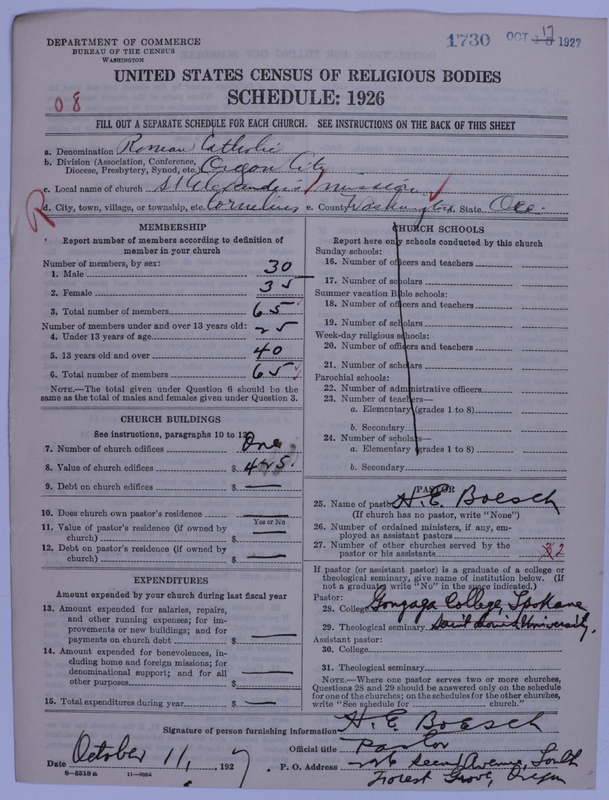 DEPARTMENT OF COMMERCE
BUREAU OF THE CENSUS
WASHINGTON
1730 OCT 17 1927
UNITED STATES CENSUS OF RELIGIOUS BODIES
SCHEDULE: 1926
08
FILL OUT A SEPARATE SCHEDULE FOR EACH CHURCH. SEE INSTRUCTIONS ON THE BACK OF THIS SHEET
a. Denomination Roman Catholic
b. Division (Association, Conference, Diocese, Presbytery, Synod, etc.) Oregon City
c. Local name of church St Alexanders mission
R
d. City, town, village, or township, etc. Cornelius e. County Washington f. State Ore.
MEMBERSHIP
Report number of members according to definition of member in your church
Number of members, by sex:
1. Male 30
2. Female 35
3. Total number of members 65
Number of members under and over 13 years old:
4. Under 13 years of age 25
5. 13 years old and over 40
6. Total number of members 65
NOTE.—The total given under Question 6 should be the same as the total of males and females given under Question 3.
CHURCH BUILDINGS
See instructions, paragraphs 10 to 12
7. Number of church edifices One
8. Value of church edifices $
9. Debt on church edifices $ —
10. Does church own pastor's residence? —
Yes or No
11. Value of pastor's residence (if owned by church) $ —
12. Debt on pastor's residence (if owned by church) $ —
EXPENDITURES
Amount expended by your church during last fiscal year
13. Amount expended for salaries, repairs, and other running expenses; for improvements or new buildings; and for payments on church debt $ —
14. Amount expended for benevolences, including home and foreign missions; for denominational support; and for all other purposes $ —
15. Total expenditures during year $ —
CHURCH SCHOOLS
Report here only schools conducted by this church
Sunday schools:
16. Number of officers and teachers
17. Number of scholars
Summer vacation Bible schools:
18. Number of officers and teachers
19. Number of scholars
Week-day religious schools:
20. Number of officers and teachers
21. Number of scholars
Parochial schools:
22. Number of administrative officers
23. Number of teachers—
a. Elementary (grades 1 to 8)
b. Secondary
24. Number of scholars—
a. Elementary (grades 1 to 8)
b. Secondary
PASTOR
25. Name of pastor H. E. Boesch
(If church has no pastor, write "None")
26. Number of ordained ministers, if any, employed as assistant pastors
27. Number of other churches served by the pastor or his assistants 2
If pastor (or assistant pastor) is a graduate of a college or theological seminary, give name of institution below. (If not a graduate write "No" in the space indicated.)
Pastor:
28. College Gonzaga College, Spokane
29. Theological seminary Saint Louis University.
Assistant pastor:
30. College
31. Theological seminary
NOTE.—Where one pastor serves two or more churches, Questions 28 and 29 should be answered only on the schedule for one of the churches; on schedules for the other churches, write "See schedule for church."
Signature of person furnishing information H. E. Boesch
Official title Pastor
Date October 11, 1927
P. O. Address Second Avenue, South
Forest Grove, Oregon
6—5518a 11—9064